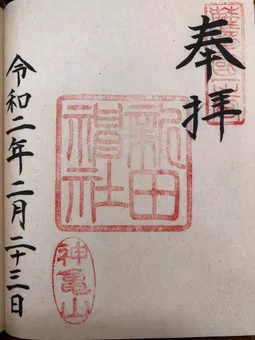 薩摩國
奉拝
新田
神社
神亀山
令和二年二月二十三日